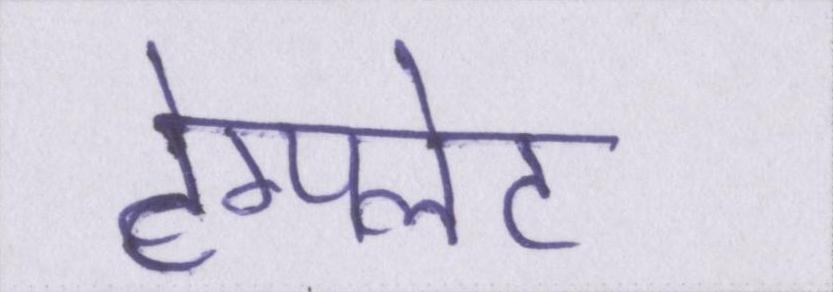 टेम्पलेट